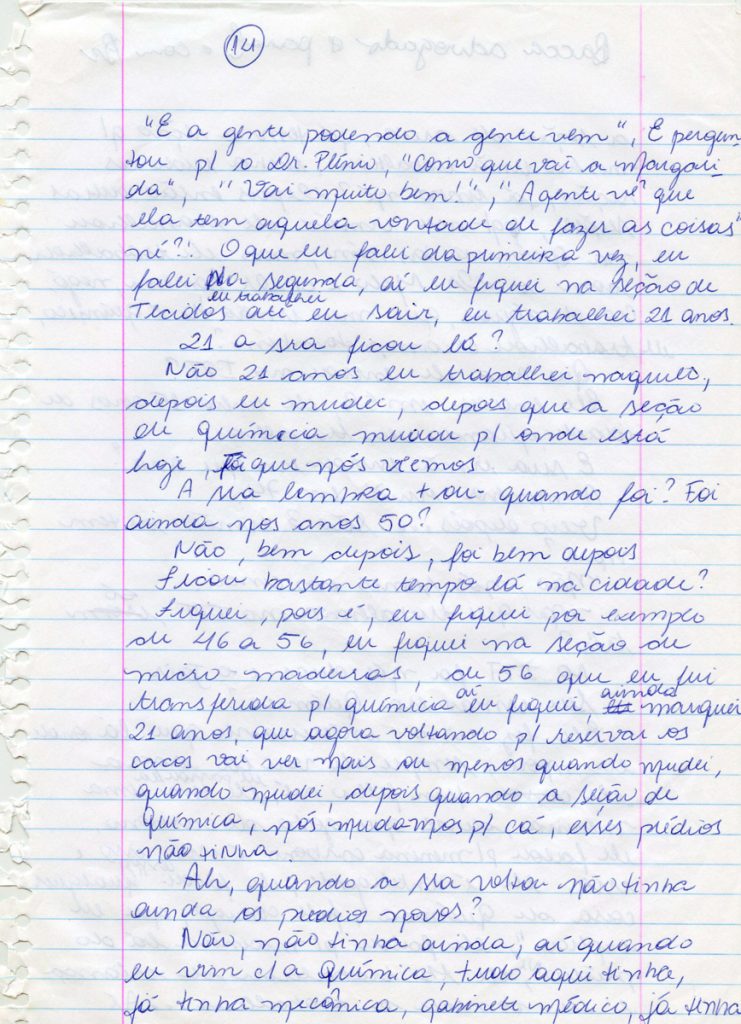 14
"E a gente podendo a gente vem", E pergun-
tou p/ o Dr. Plínio, "Como que vai a Margari-
da", "Vai muito bem!", "A gente vê que
ela tem aquela vontade de fazer as coisas"
né?! O que eu falei da primeira vez, eu
falei Na segunda, aí eu fiquei na seção de
eu trabalhei
Tecidos até eu sair, eu trabalhei 21 anos.
21 a sra ficou lá?
Não 21 anos eu trabalhei naquela,
depois eu mudei, depois que a seção
de química mudou p/ onde está
hoje, que nós viemos
A sra lembra + ou - quando foi? Foi
ainda nos anos 50?
Não, bem depois, foi bem depois
Ficou bastante tempo lá na cidade?
Fiquei, pois é, eu fiquei por exemplo
de 46 a 56, eu fiquei na seção de
micro madeiras, de 56 que eu fui
aí ainda
transferida p/ química eu fiquei, marquei
21 anos, que agora voltando p/ reservar os
cacos vai ver mais ou menos quando mudei,
quando mudei, depois quando a seção de
química, nós mudamos p/ cá, esses prédios
não tinha.
Ah, quando a sra voltou não tinha
ainda os prédios novos?
Não, não tinha ainda, aí quando
eu vim c/ a Química, tudo aqui tinha,
já tinha mecânica, gabinete médico, já tinha